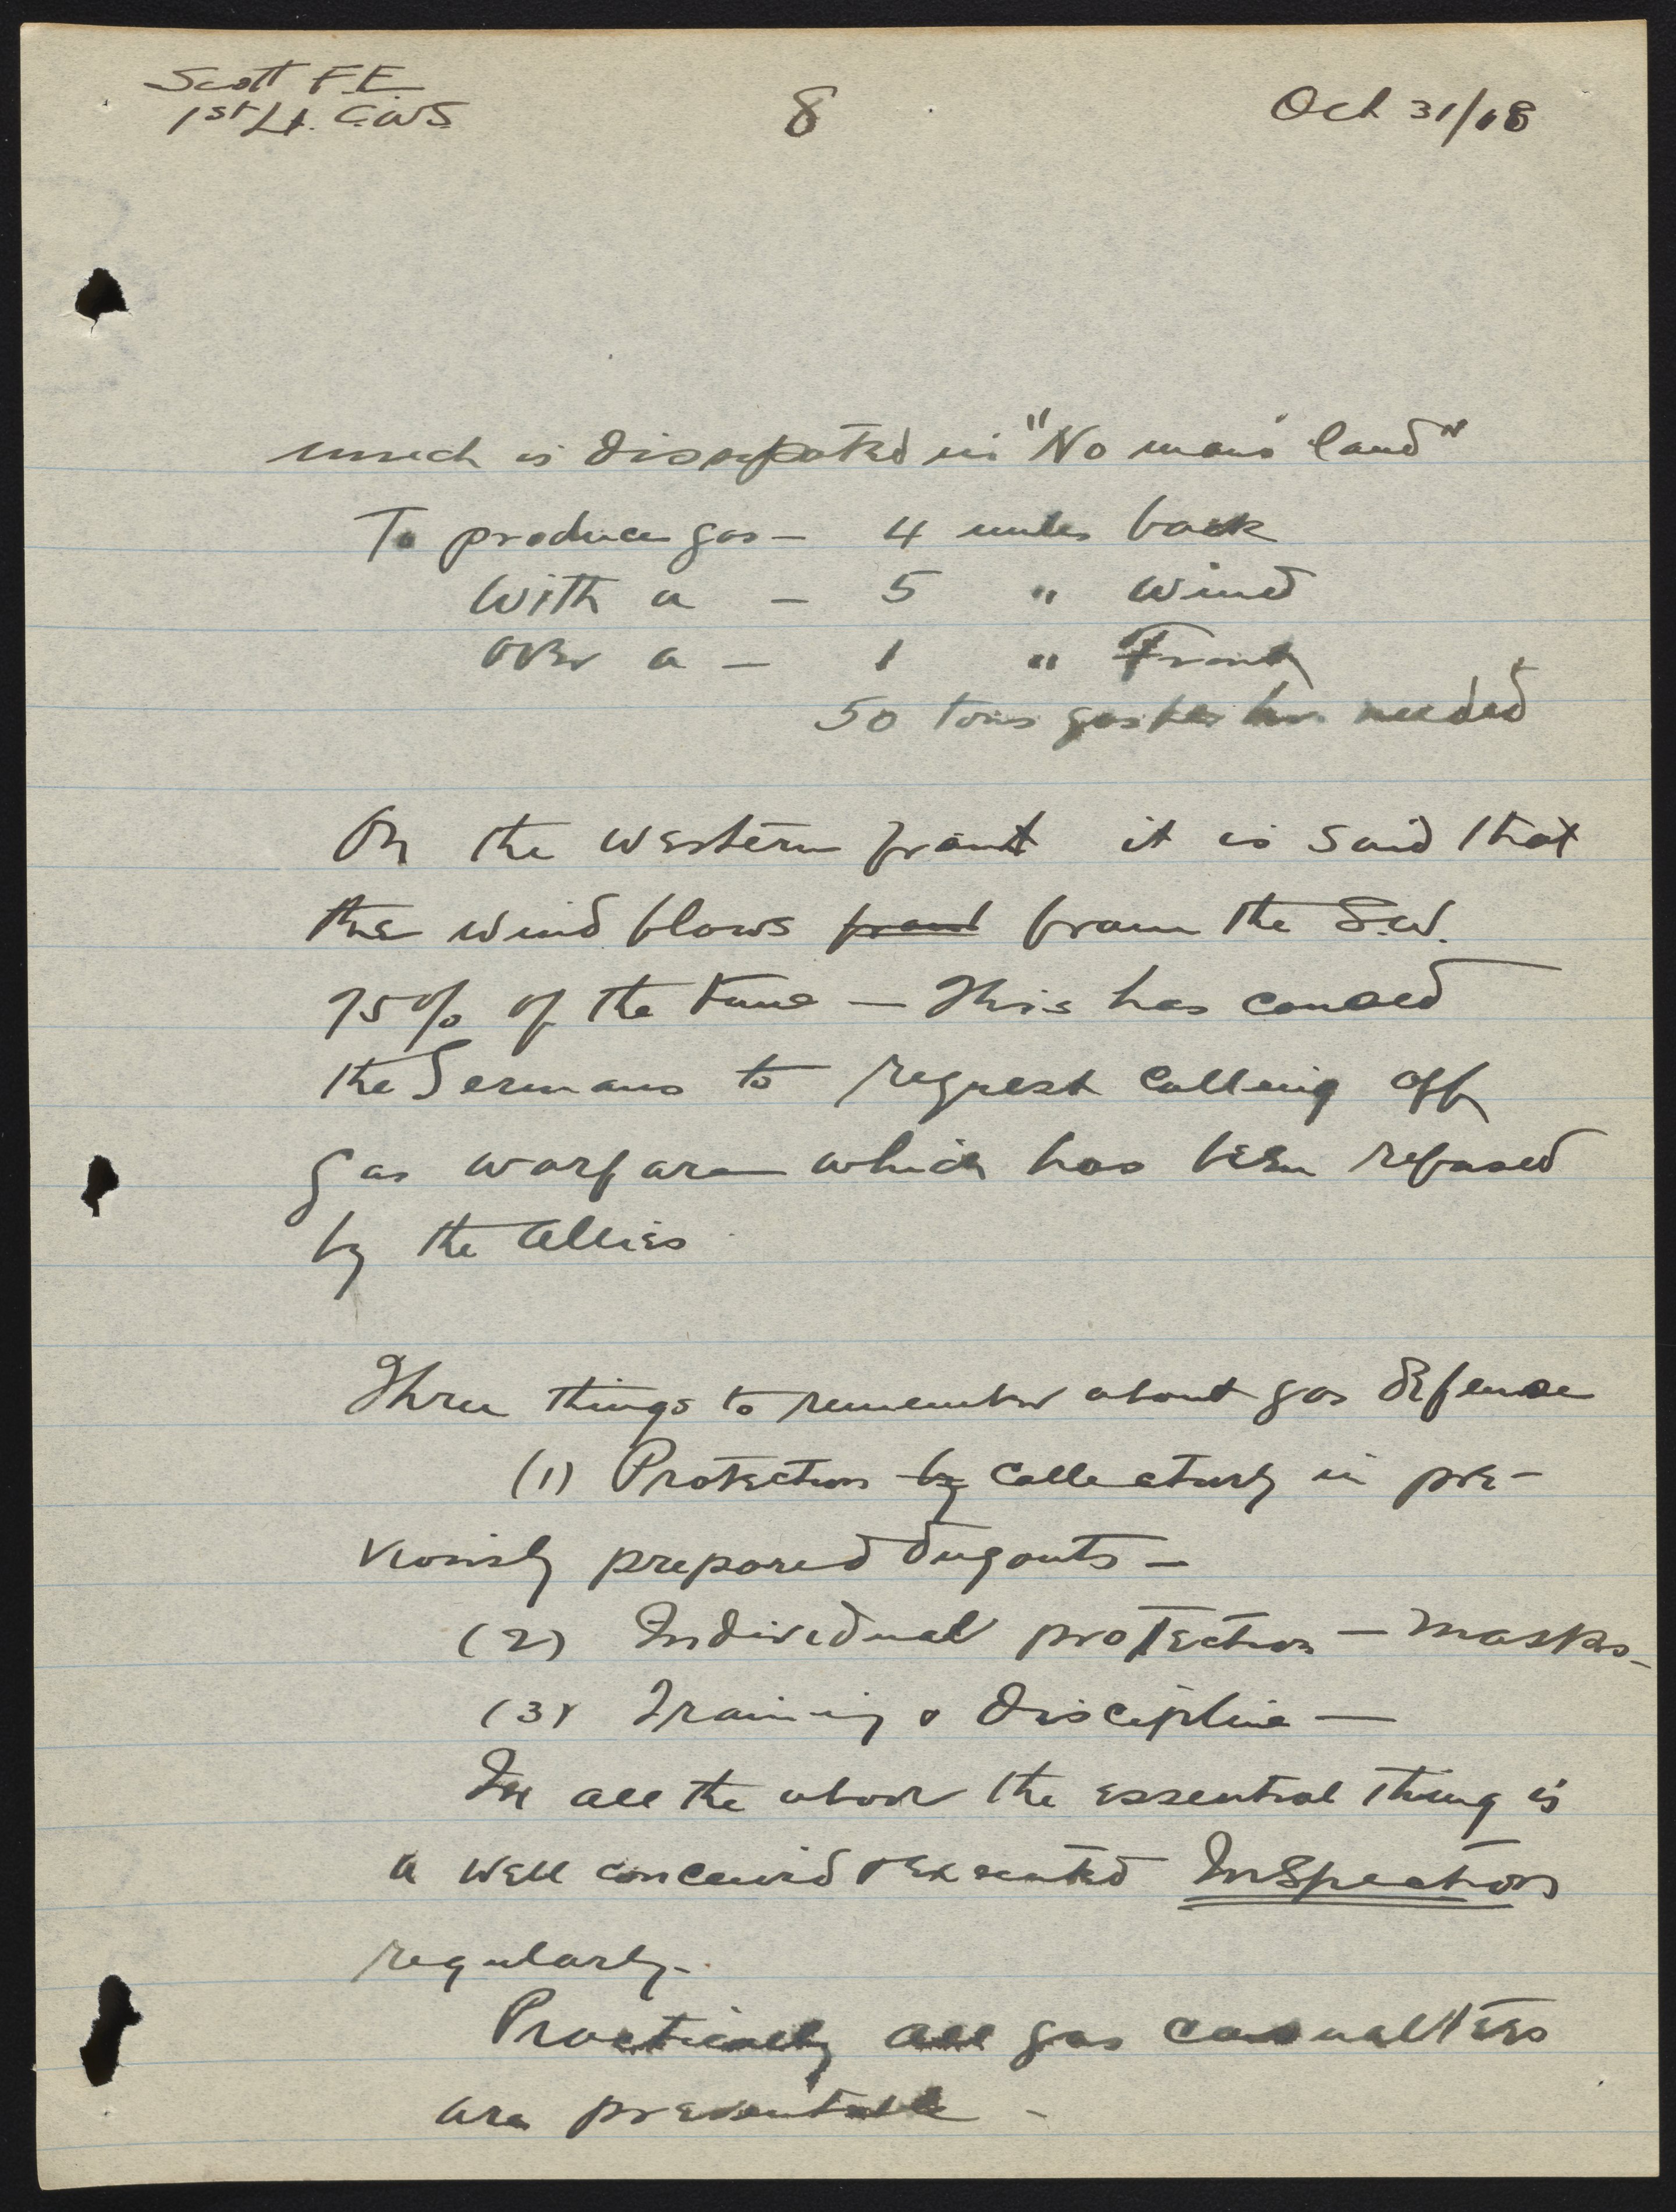 Scott F.E.
1st Lt. C.W.S.
8
Oct 31/18
much is dissipated in "No mans' land"
To produce gas — 4 miles back
With a — 5 " wind
over a — 1 " Front
50 tons gas per hr. needed
On the western front it is said that
the wind blows from the S.W.
75% of the time — This has caused
the Germans to request calling off
gas warfare which has been refused
by the Allies
Three things to remember about gas defense
(1) Protection by collectively in pre-
viously prepared dugouts —
(2) Individual protection — masks —
(3) Training & discipline —
In all the above the essential thing is
a well conceived & executed Inspection
regularly.
Practically all gas casualties
are preventable —